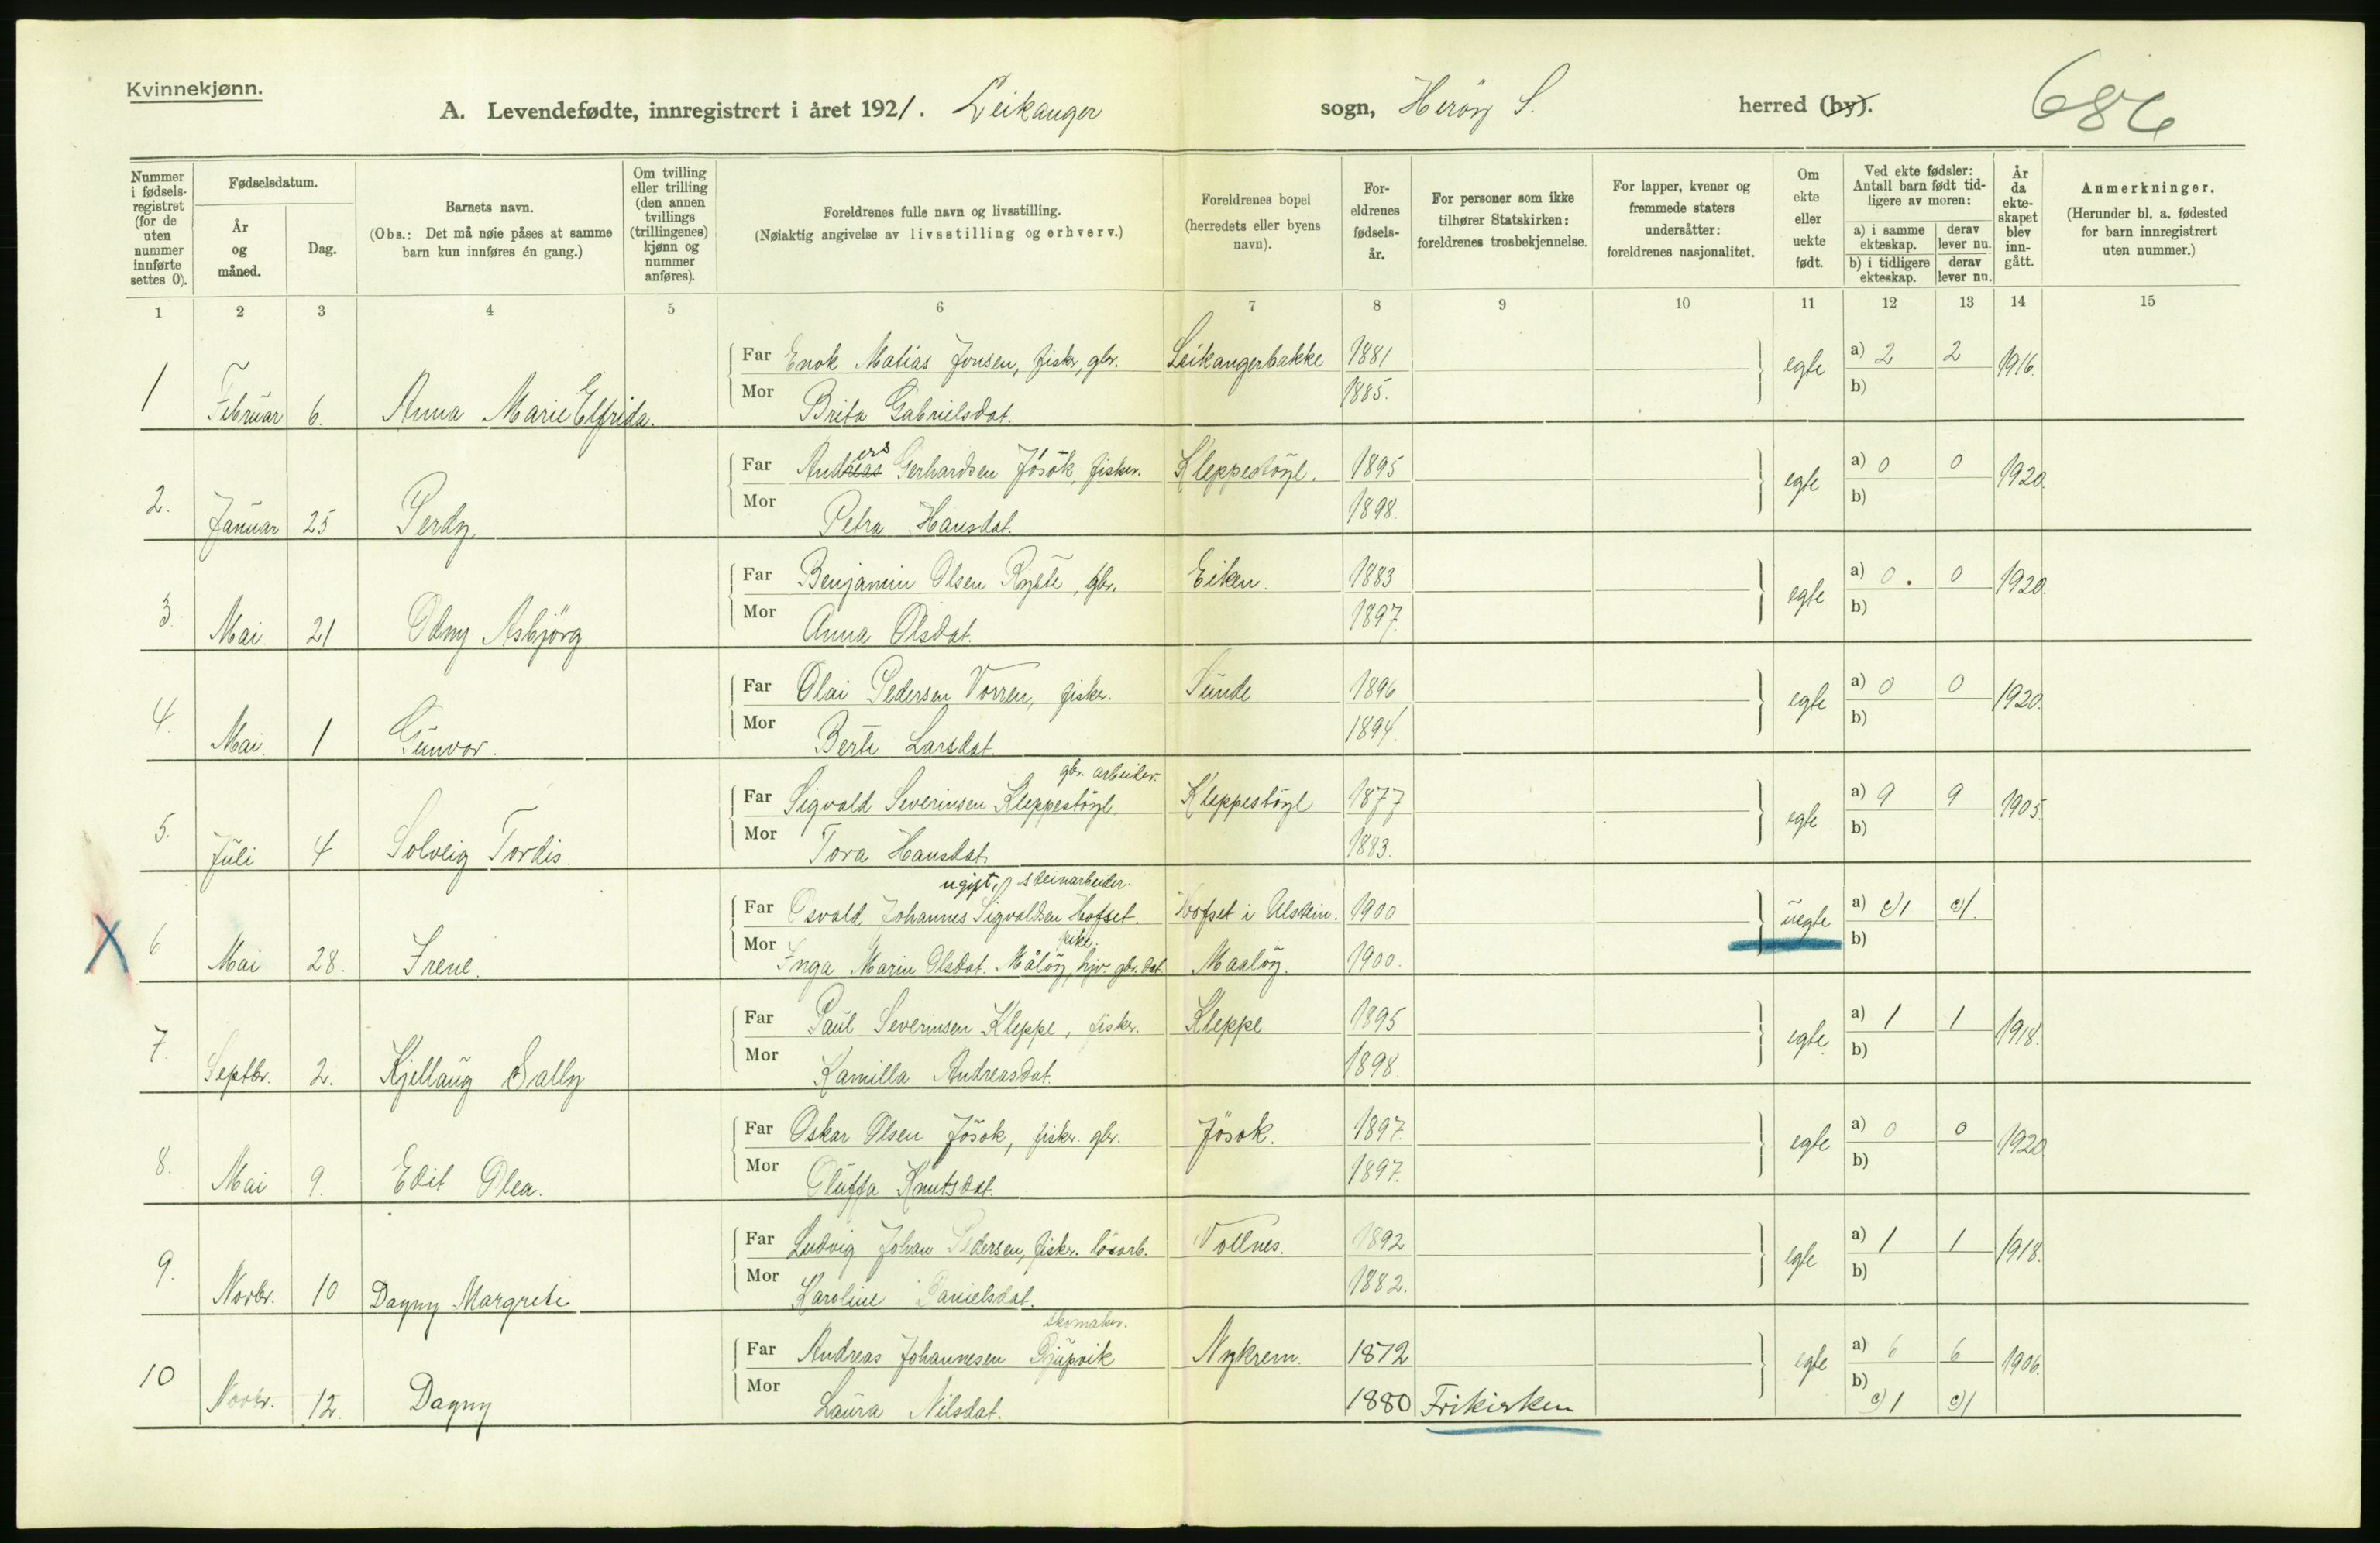 Kvinnekjønn.
A. Levendefødte, innregistrert i året 1921. Leikanger sogn, Herøy S. herred (by).
686
Nummer i fødsels-registret (for de uten nummer innførte settes 0).
Fødselsdatum.
År og måned.
Dag.
Barnets navn.
(Obs.: Det må nøie påses at samme barn kun innføres én gang.)
Om tvilling eller trilling (den annen tvillings (trillingenes) kjønn og nummer anføres).
Foreldrenes fulle navn og livsstilling.
(Nøiaktig angivelse av livsstilling og erhverv.)
Foreldrenes bopel (herredets eller byens navn).
For-eldrenes fødsels-år.
For personer som ikke tilhører Statskirken: foreldrenes trosbekjennelse.
For lapper, kvener og fremmede staters undersåtter: foreldrenes nasjonalitet.
Om ekte eller uekte født.
Ved ekte fødsler: Antall barn født tid-ligere av moren:
a) i samme ekteskap. derav lever nu.
b) i tidligere ekteskap. derav lever nu.
År da ekte-skapet blev inn-gått.
Anmerkninger.
(Herunder bl. a. fødested for barn innregistrert uten nummer.)
1 2 3 4 5 6 7 8 9 10 11 12 13 14 15
Far Enok Matias Jonsen, fisker, gbr. Leikangerbakke 1881 egte a) 2 2 1916.
1 Februar 6. Anna Marie Elfrida. Mor Brita Gabrielsdat. 1885. b)
Far Andreas ers Gerhardsen Jösok, fisker. Kleppestöyl. 1895 egte a) 0 0 1920.
2. Januar 25 Perdy Mor Petra Hansdat. 1898. b)
Far Benjamin Olsen Ryste, gbr. Eiken. 1883 egte a) 0. 0 1920.
3. Mai 21 Odny Asbjörg Mor Anna Olsdat. 1897. b)
Far Olai Pedersen Vorren, fisker. Sunde 1896 egte a) 0 0 1920.
4. Mai. 1 Gunvor. Mor Berte Larsdat. 1894. b)
gbr. arbeider.
Far Sigvald Severinsen Kleppestöyl, Kleppestöyl 1877 egte a) 9 9 1905.
5. Juli 4 Solveig Tordis. Mor Tora Hansdat. 1883. b)
ugift, steinarbeider.
Far Osvald Johannes Sigvaldsen Hofset. Hofset i Ulstein. 1900 uegte a) c) 1 c) 1.
pike.
X 6 Mai 28. Irene. Mor Inga Marie Olsdat. Måløy, hjv. gbr. dat. Maaløy. 1900. b)
Far Paul Severinsen Kleppe, fisker. Kleppe 1895 egte a) 1 1 1918.
7. Septbr. 2. Kjellaug Sally Mor Kamilla Andreasdat. 1898. b)
Far Oskar Olsen Jösok, fisker. gbr. Jösok. 1897. egte a) 0 0 1920
8. Mai 9. Edit Olea. Mor Oluffa Knutsdat. 1897. b)
Far Ludvig Johan Pedersen, fisker. lösarb. Vollnes. 1892 egte a) 1 1 1918.
9. Novbr. 10 Dagny Margrete Mor Karoline Danielsdat. 1882. b)
skomaker.
Far Andreas Johannesen Djupvik Nykrem. 1872 egte a) 6 6 1906.
10 Novbr. 12. Dagny Mor Laura Nilsdat. 1880 Frikirken b) c) 1 c) 1